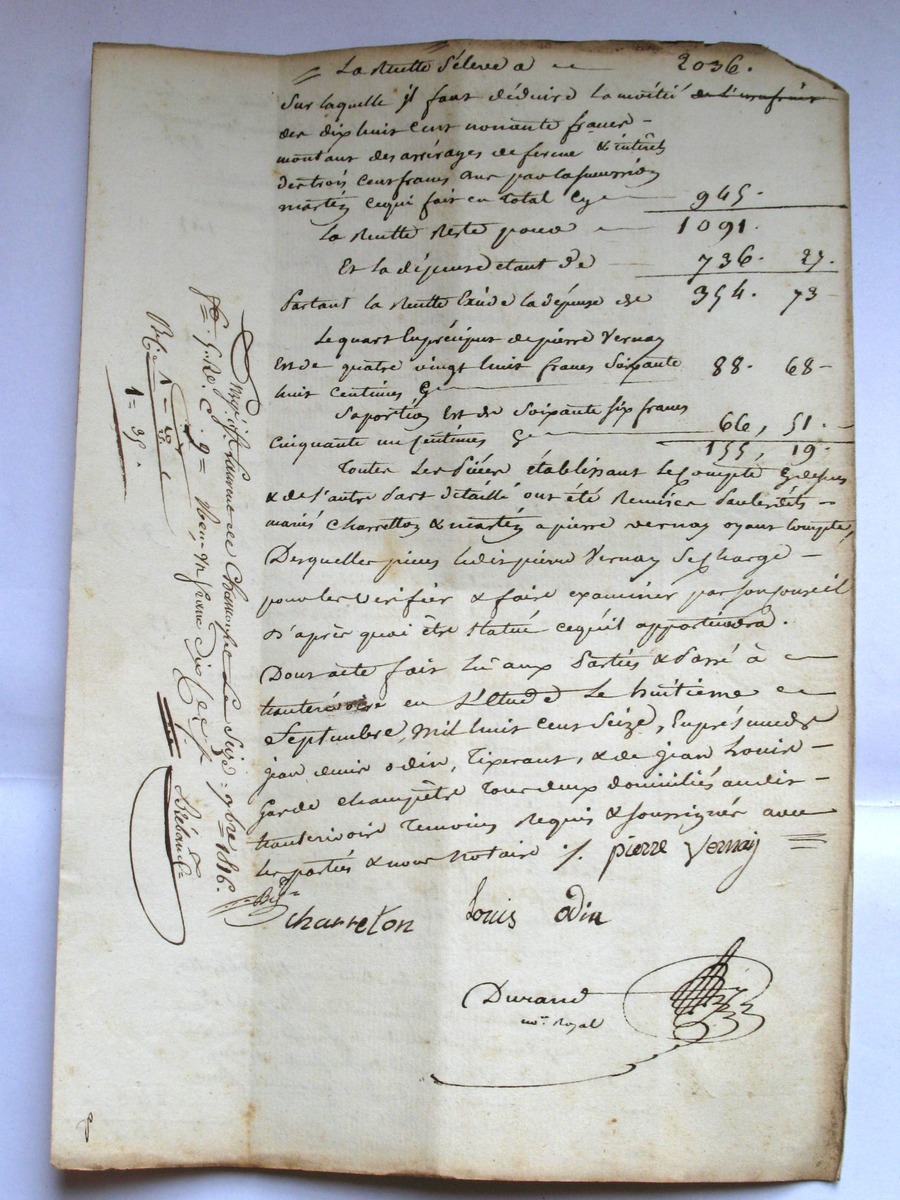 La Recette s'éleve a 2036.
Sur laquelle il faut déduire la moitié de l'usufruit
des dix huit cent nonante francs
montant des arrérages de ferme & intérêts
des trois cent francs par la succession
ce qui fait en total cy 945.
La Recette Reste pour 1091.
Et la dépense étant de 736. 27.
Partant la Recette Excéde la dépense de 354. 73
Le quart en préciput de pierre Vernay
Est de quatre vingt huit francs Soixante
huit centimes cy 88. 68
Sa portion Est de Soixante six francs
Cinquante un centimes cy 66, 51.
155, 19.
Toutes Les Piéces établissant Le Compte cy dessus
& de l'autre Part détaillé ont été Remises Par les dits
mariés Charretton & a pierre Vernay oyant Compte,
Desquelles pieces ledit pierre Vernay Se Charge
pour les vérifier & faire examiner par son conseil
D'après quoi être Statué ce qu'il appartiendra.
Dont acte fait lu aux Parties & Passé à
hauterivoire en L'Etude Le huitieme
Septembre, Mil huit cent Seize, En présence de
jean odin, Tixerant, & de jean Louis
Garde Champêtre Tous deux domiciliés audit
hauterivoire Temoins Requis & soussignés avec
les parties & nous Notaire ./. pierre Vernay
charreton Louis odin
Durand
not. Royal
Enregistré à St. Laurent de Chamousset Le Seize 7bre 1816.
f. 9
1 = 35.